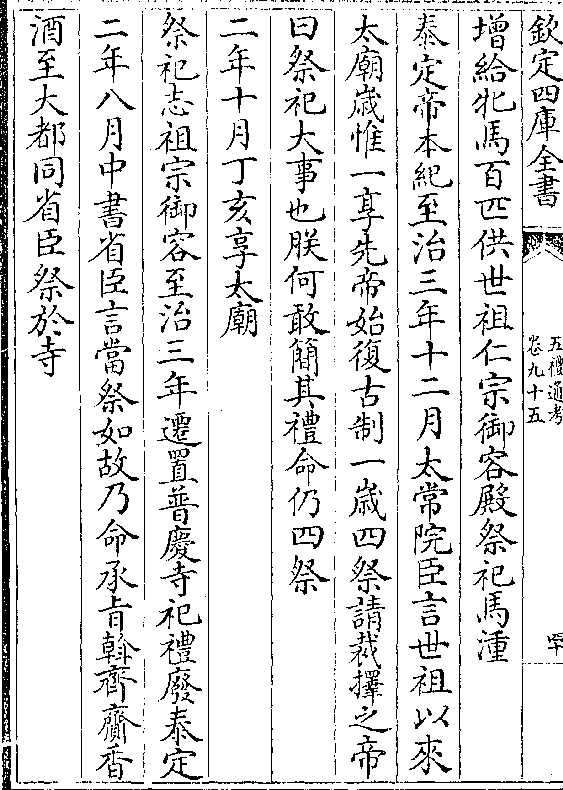 欽定四庫全書
五禮通考
卷九十五
四十
增給牝馬百匹供世祖仁宗御容殿祭祀馬湩
泰定帝本紀至治三年十二月太常院臣言世祖以來
太廟歲惟一享先帝始復古制一歲四祭請裁擇之帝
曰祭祀大事也朕何敢簡其禮命仍四祭
二年十月丁亥享太廟
祭祀志祖宗御容至治三年遷置普慶寺祀禮廢泰定
二年八月中書省臣言當祭如故乃命承旨斡齊齎香
酒至大都同省臣祭於寺